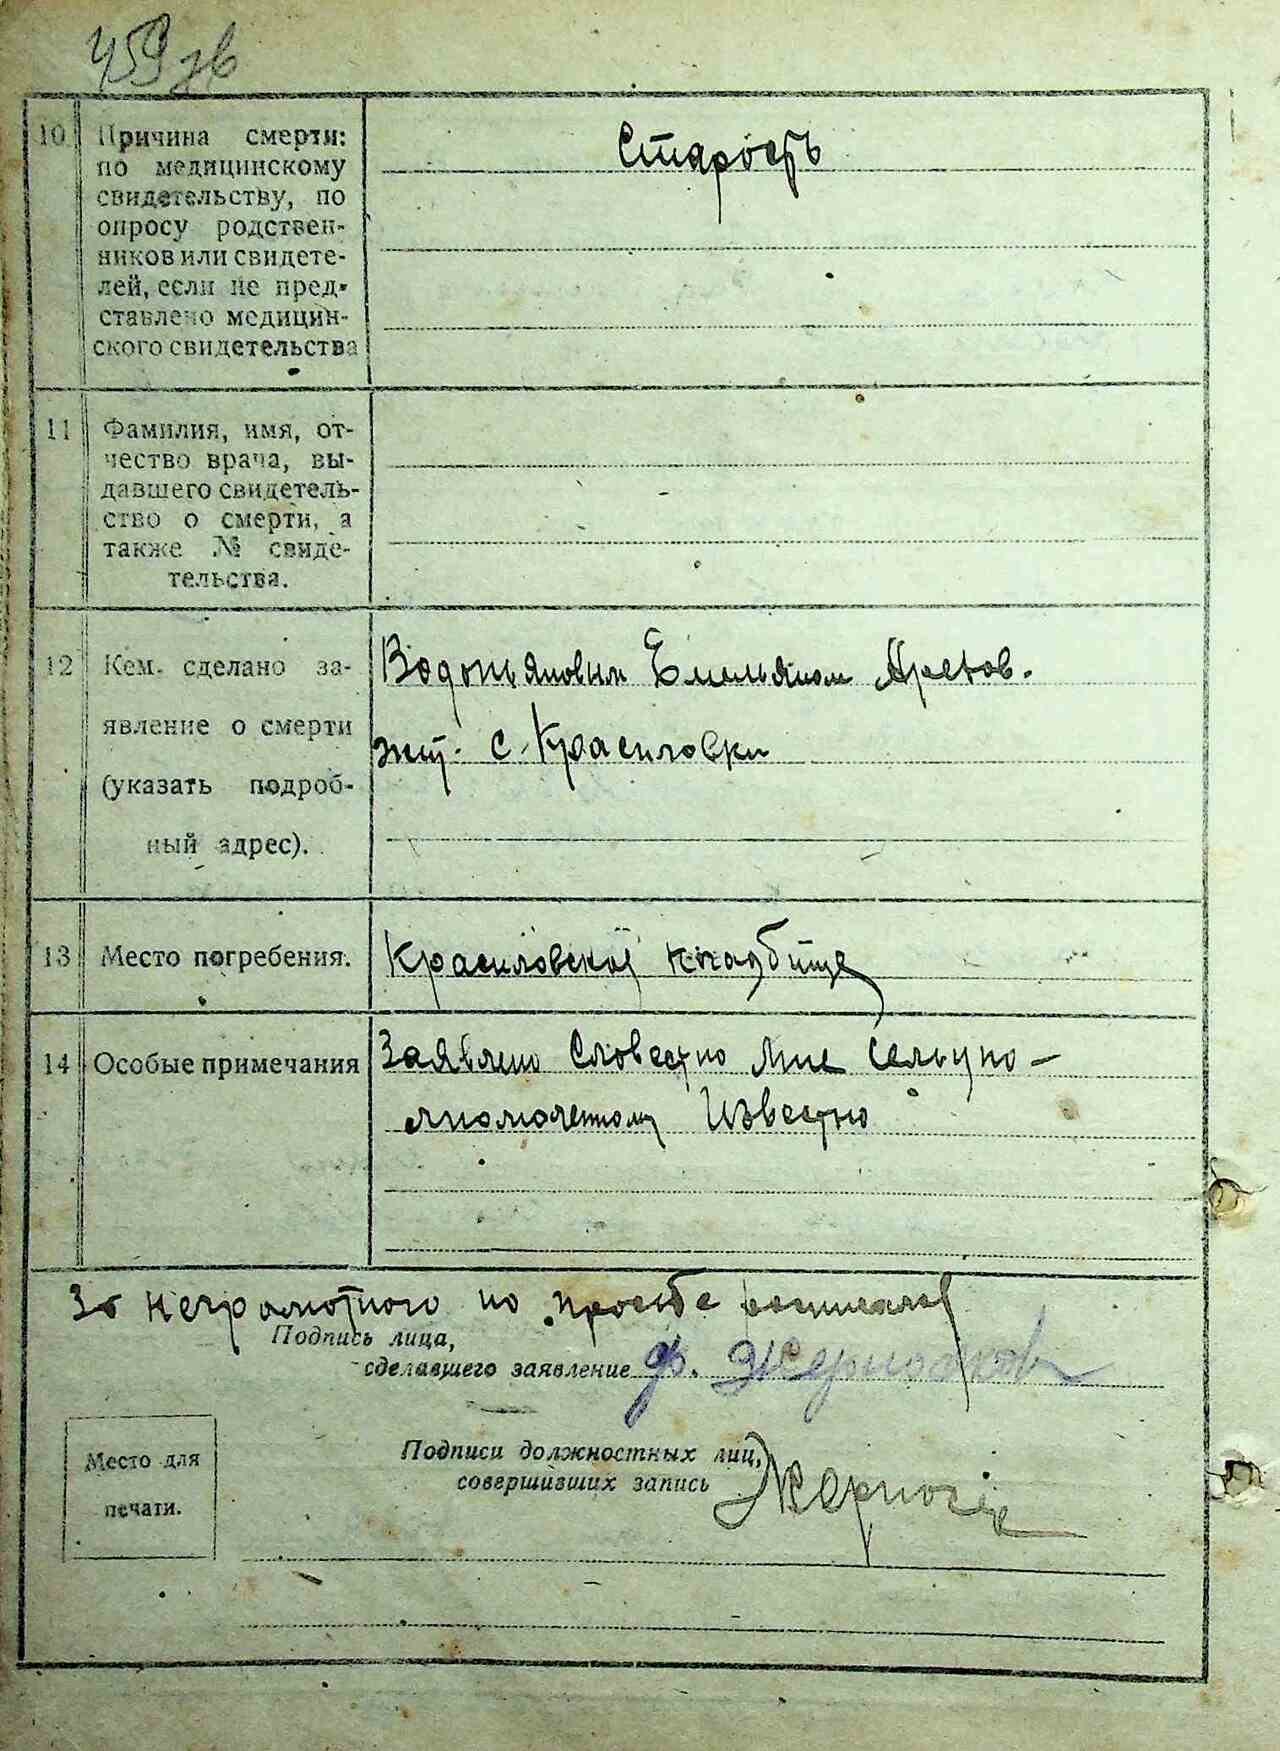 459 зв
10 Причина смерти:
по медицинскому
свидетельству, по
опросу родствен-
ников или свидете-
лей, если не пред-
ставлено медицин-
ского свидетельства
Старость
11 Фамилия, имя, от-
чество врача, вы-
давшего свидетель-
ство о смерти, а
также № свиде-
тельства.
12 Кем сделано за-
явление о смерти
(указать подроб-
ный адрес).
Водопьяновым Емельяном Аретов.
жит. с. Красиловки
13 Место погребения.
Красиловской кладбище
14 Особые примечания
Заявлено словестно мне сельупо-
лномоченному известно
За неграмотного по просьбе росписался
Подпись лица,
сделавшего заявление Ф.
Подписи должностных лиц,
совершивших запись
Место для
печати.